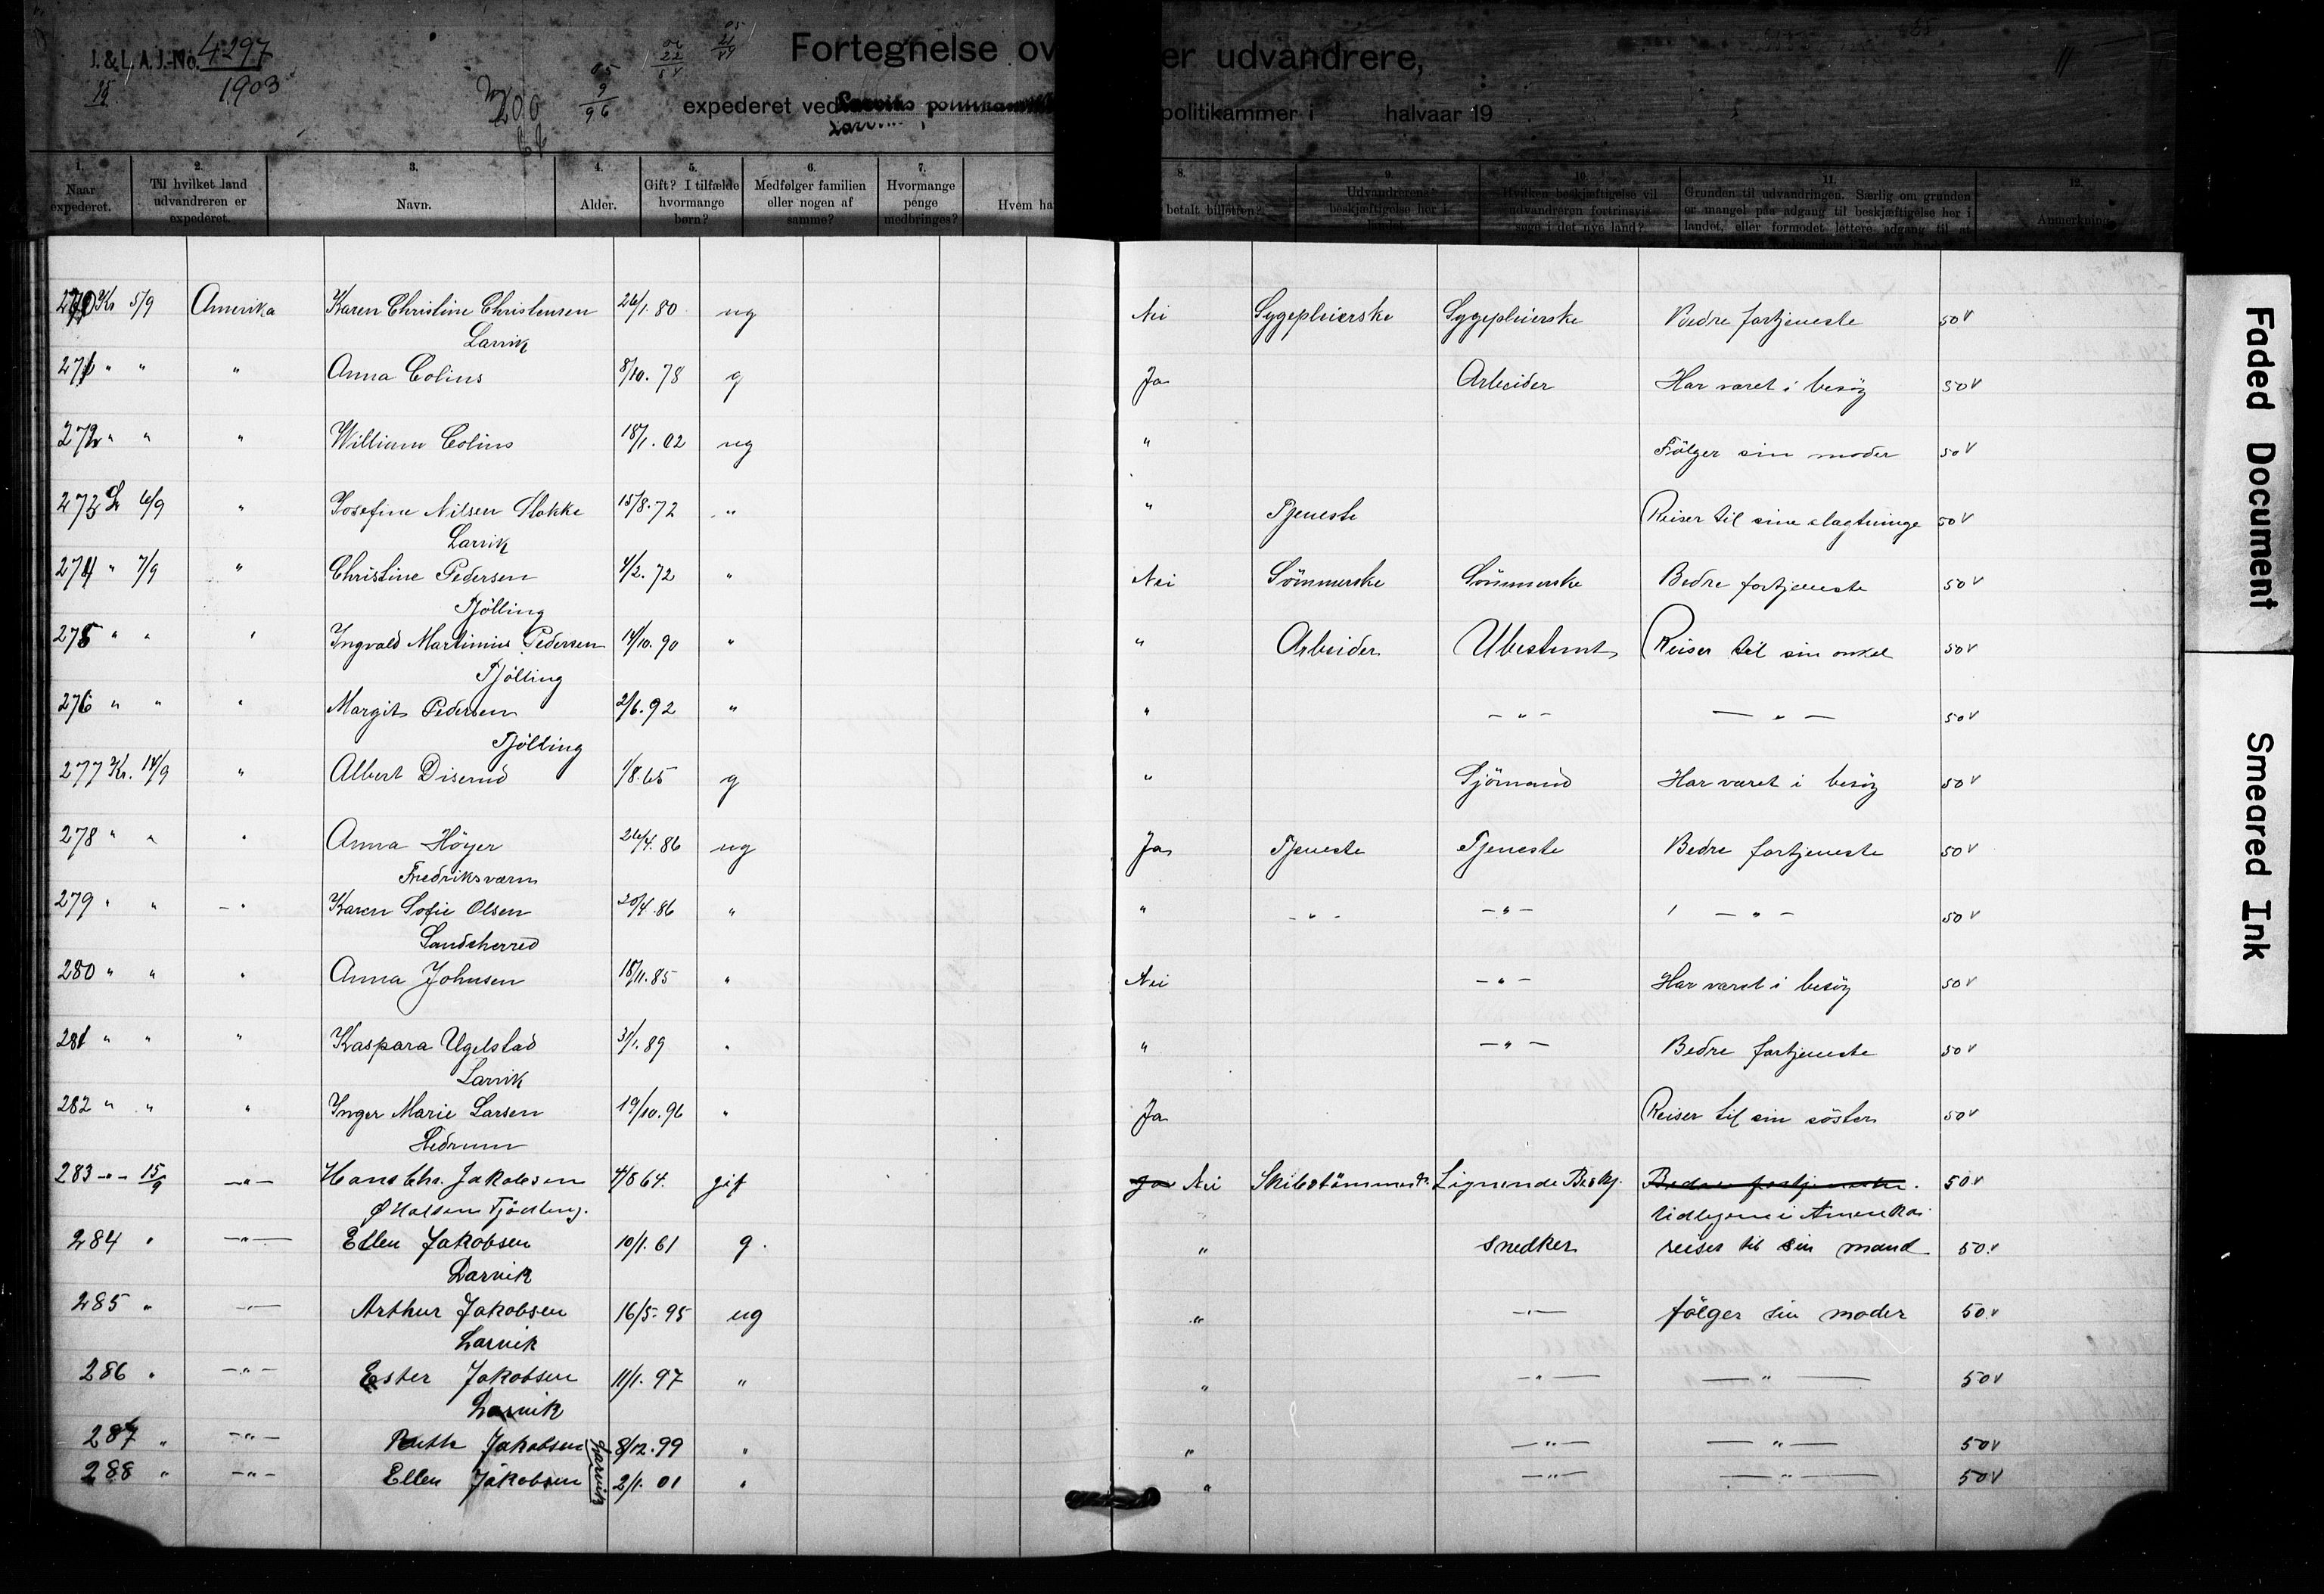 J. & L. A. J.-No. 4297
1903
Fortegnelse ov er udvandrere,
expederet ved politikammer i halvaar 19
1. 2. 3. 4. 5. 6. 7. 8. 9. 10. 11. 12.
Naar expederet. Til hvilket land udvandreren er expederet. Navn. Alder. Gift? I tilfælde hvormange børn? Medfølger familien eller nogen af samme? Hvormange penge medbringes? Hvem ha betalt billetten? Udvandrerens beskjæftigelse her i landet. Hvilken beskjæftigelse vil udvandreren fortrinsvis søge i det nye land? Grunden til udvandringen. Særlig om grunden er mangel paa adgang til beskjæftigelse her i landet, eller formodet lettere adgang til at Anmerkning.
270 Kr 5/9 Amerika Karen Christine Christensen 26/1. 80 ug Nei Sygepleierske Sygepleierske Bedre fortjeneste 50 v
Larvik
271 " " " Anna Colins 8/10. 78 g Ja Arbeider Har været i besög 50 v
272 " " " William Colins 18/1. 02 ug " Fölger sin moder 50 v
273 L 6/9 " Josefine Nilsen Stokke 15/8. 72 " " Tjeneste Reiser til sine slægtninge 50 v
Larvik
274 " 7/9 " Christine Pedersen 4/2. 72 " Nei Sömmerske Sömmerske Bedre fortjeneste 50 v
Tjölling
275 " " " Ingvald Martinius Pedersen 14/10. 90 " " Arbeider Ubestemt Reiser til sin onkel 50 v
Tjölling
276 " " " Margit Pedersen 2/6. 92 " " - " - - " - 50 v
Tjölling
277 Kr. 14/9 " Albert Diserud 1/8. 65 g " Sjömand Har været i besög 50 v
278 " " " Anna Höyer 26/4. 86 ug Ja Tjeneste Tjeneste Bedre fortjeneste 50 v
Fredriksværn
279 " " - " Karen Sofie Olsen 20/4. 86 " " - " - - " - - " - 50 v
Sandeherred
280 " " " Anna Johnsen 18/11. 85 " Nei - " - Har været i besög 50 v
281 " " " Kaspara Ugelstad 31/1. 89 " " - " - Bedre fortjeneste 50 v
Larvik
282 " " " Inger Marie Larsen 19/10. 96 " Ja Reiser til sin söster 50 v
Hedrum
283 - " - 15/9 - " - Hans Chr. Jakobsen 4/8 64. gif Ja Nei Skibstömmerm. Lignende Beskj. Bedre fortjeneste. 50 v
Tjölling. tidligere i Amerika
284 " - " - Ellen Jakobsen 10/1. 61 g. " Snedker reiser til sin mand 50. v
Larvik
285 " - " - Arthur Jakobsen 16/5. 95 ug " - " - fölger sin moder 50. v
Larvik
286 " - " - Ester Jakobsen 11/1. 97 " " - " - - " - 50 v
Larvik
287 " - " - Ruth Jakobsen 8/12. 99 " " - " - - " - 50 v
Larvik
288 " - " - Ellen Jakobsen 2/1. 01 " " - " - - " - 50 v
Faded Document
Smeared Ink